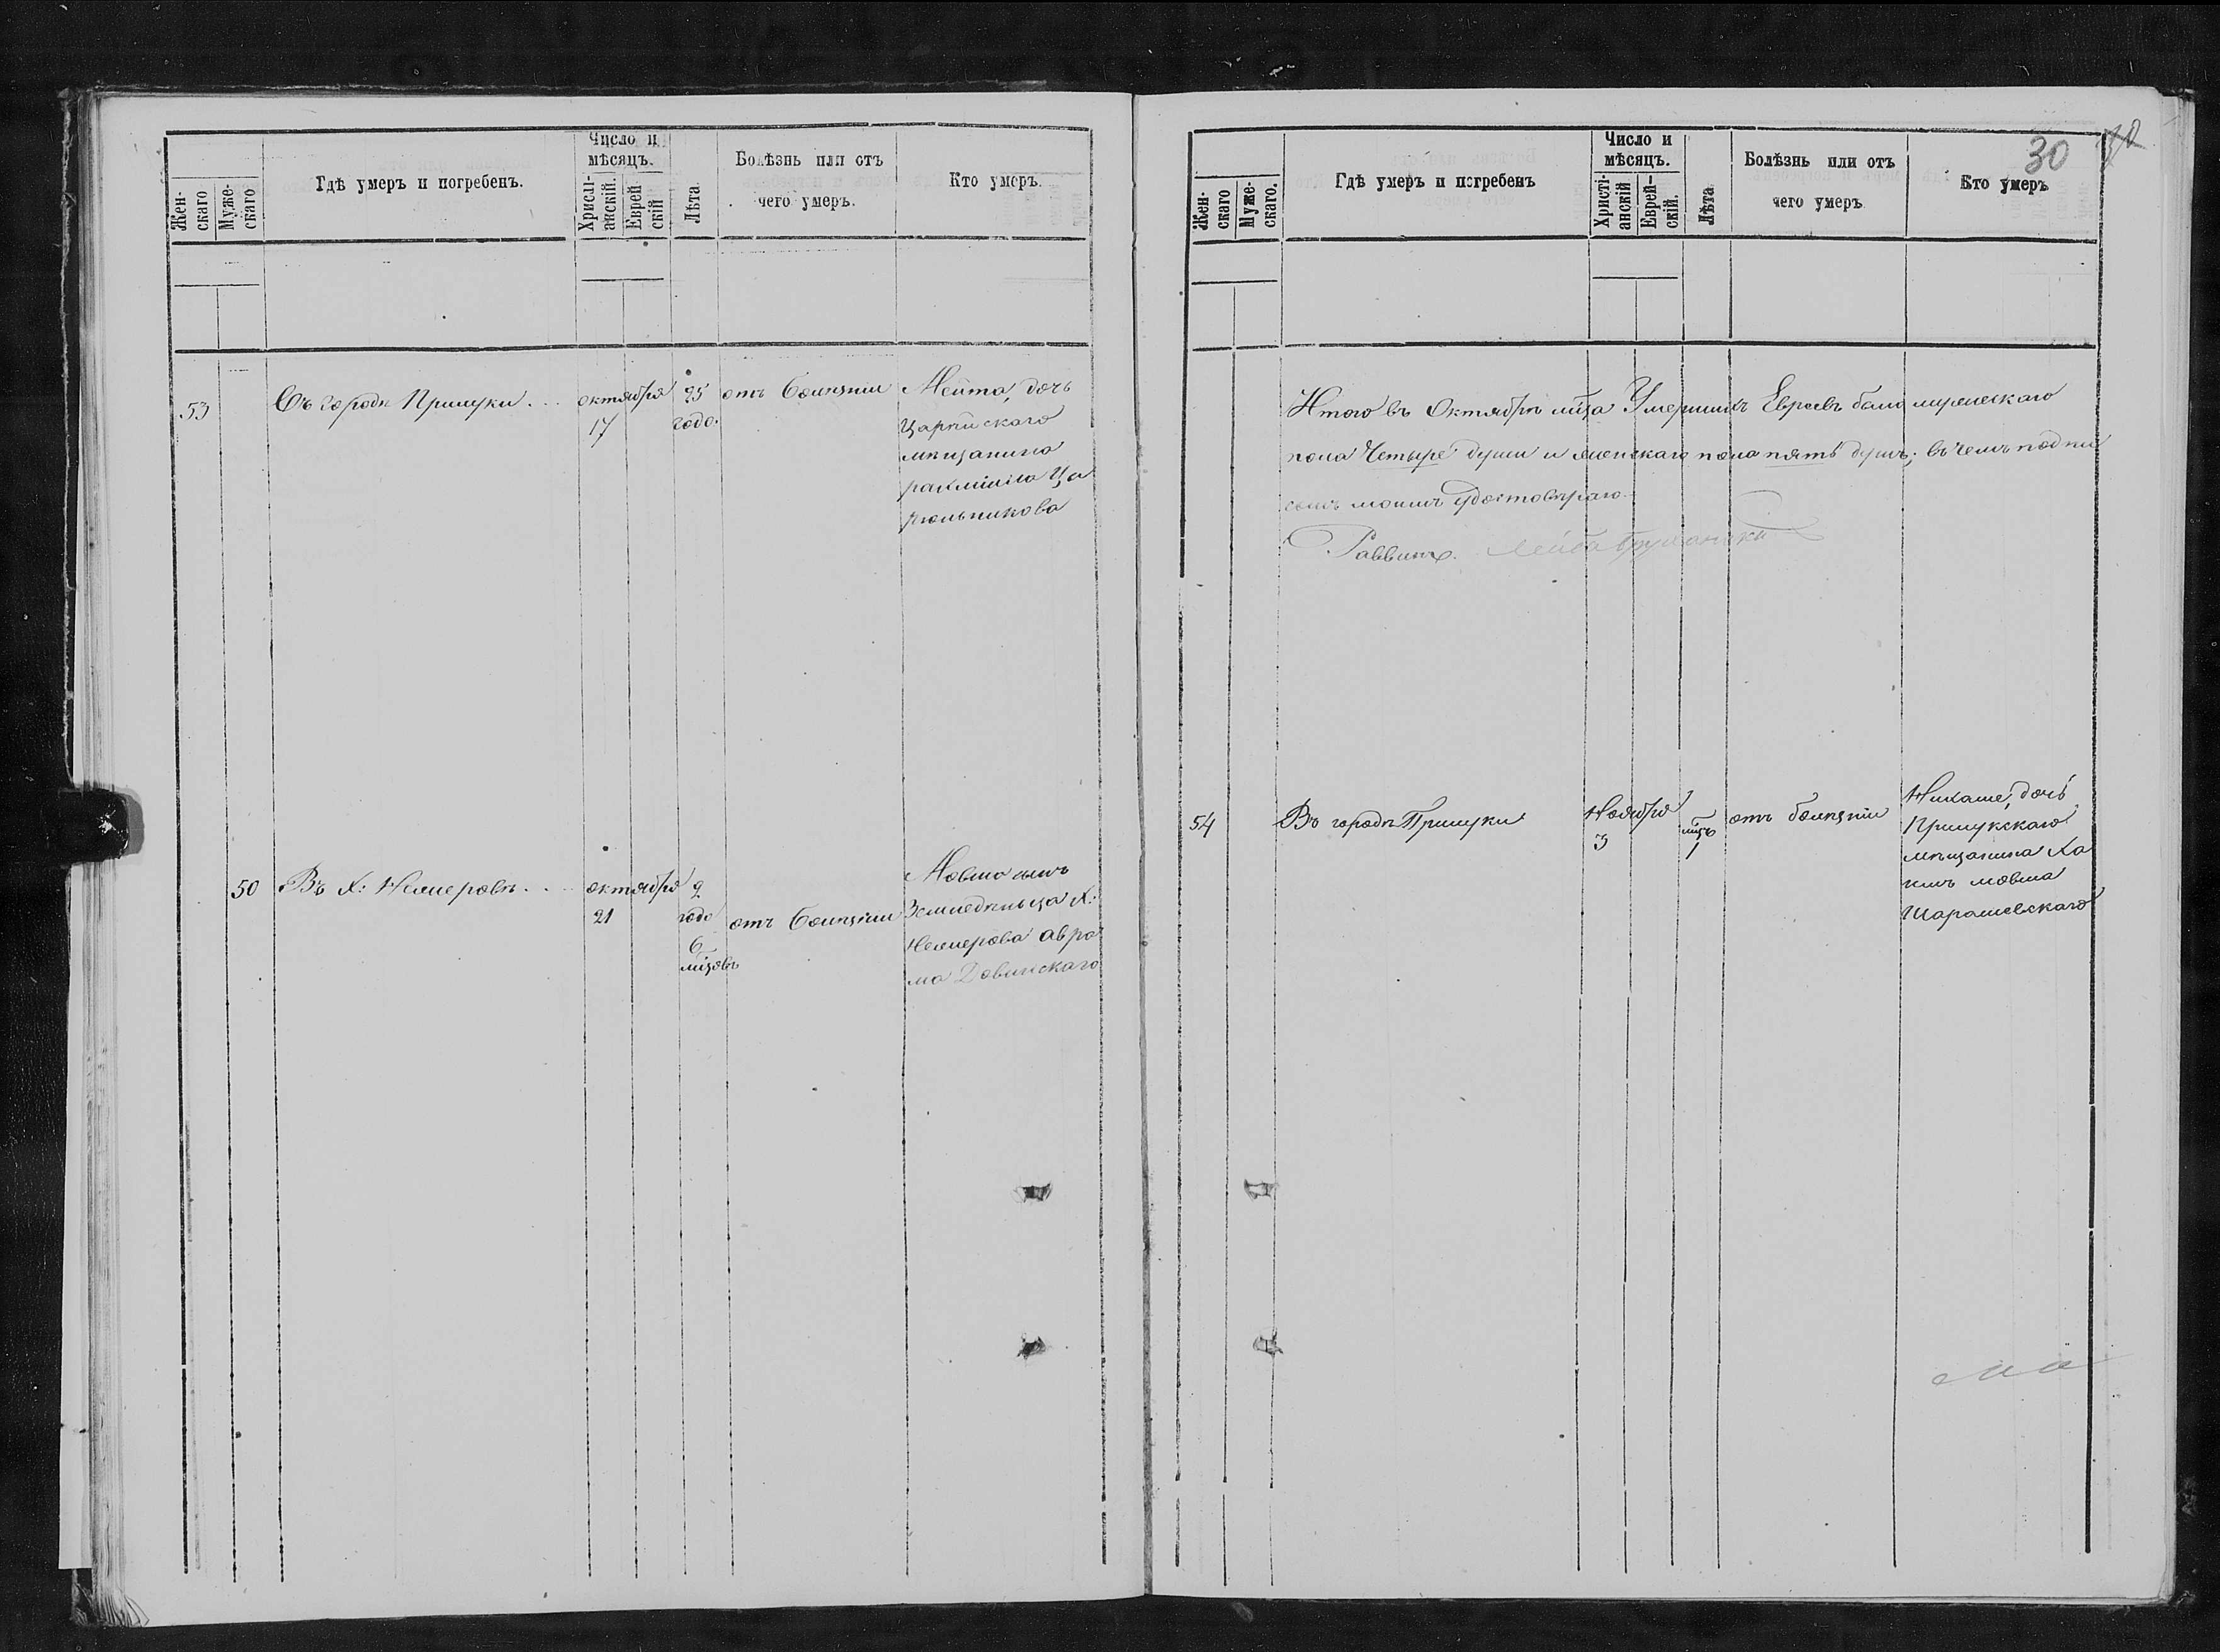 Жен-
скаго
Муже-
скаго
Гдѣ умеръ и погребенъ.
Число и
мѣсяцъ.
Христі-
анскій.
Еврей
скій
Лѣта
Болѣзнь или отъ
чего умеръ.
Кто умеръ.
53
Въ городѣ Прилуки
октября
17
25
годо.
отъ болѣзни
Мейта, дочь
скаго
мѣщанина
50
Въ Х: Немеровѣ
октября
21
2
годо
6
мѣцовъ
отъ болѣзни
Мовша сынъ
Земледѣльца Х:
Немерова Авра
ма Довинскаго
30
Жен-
скаго
Муже-
скаго.
Гдѣ умеръ и погребенъ
Число и
мѣсяцъ.
Христі-
анскій
Еврей-
скій.
Лѣта
Болѣзнь или отъ
чего умеръ
Кто умеръ
Итого въ Октябрѣ мца Умершихъ Евреевъ было мужескаго
пола Четыре души и женскаго пола пять душъ, въ чемъ подпи
сомъ моимъ удостовѣряю
Раввинъ. Лейба
54
Въ городѣ Прилуки
Ноября
3
мцъ
1
отъ болѣзни
дочь
Прилукскаго
мѣщанина Ха
имъ мовша
Шарашевскаго